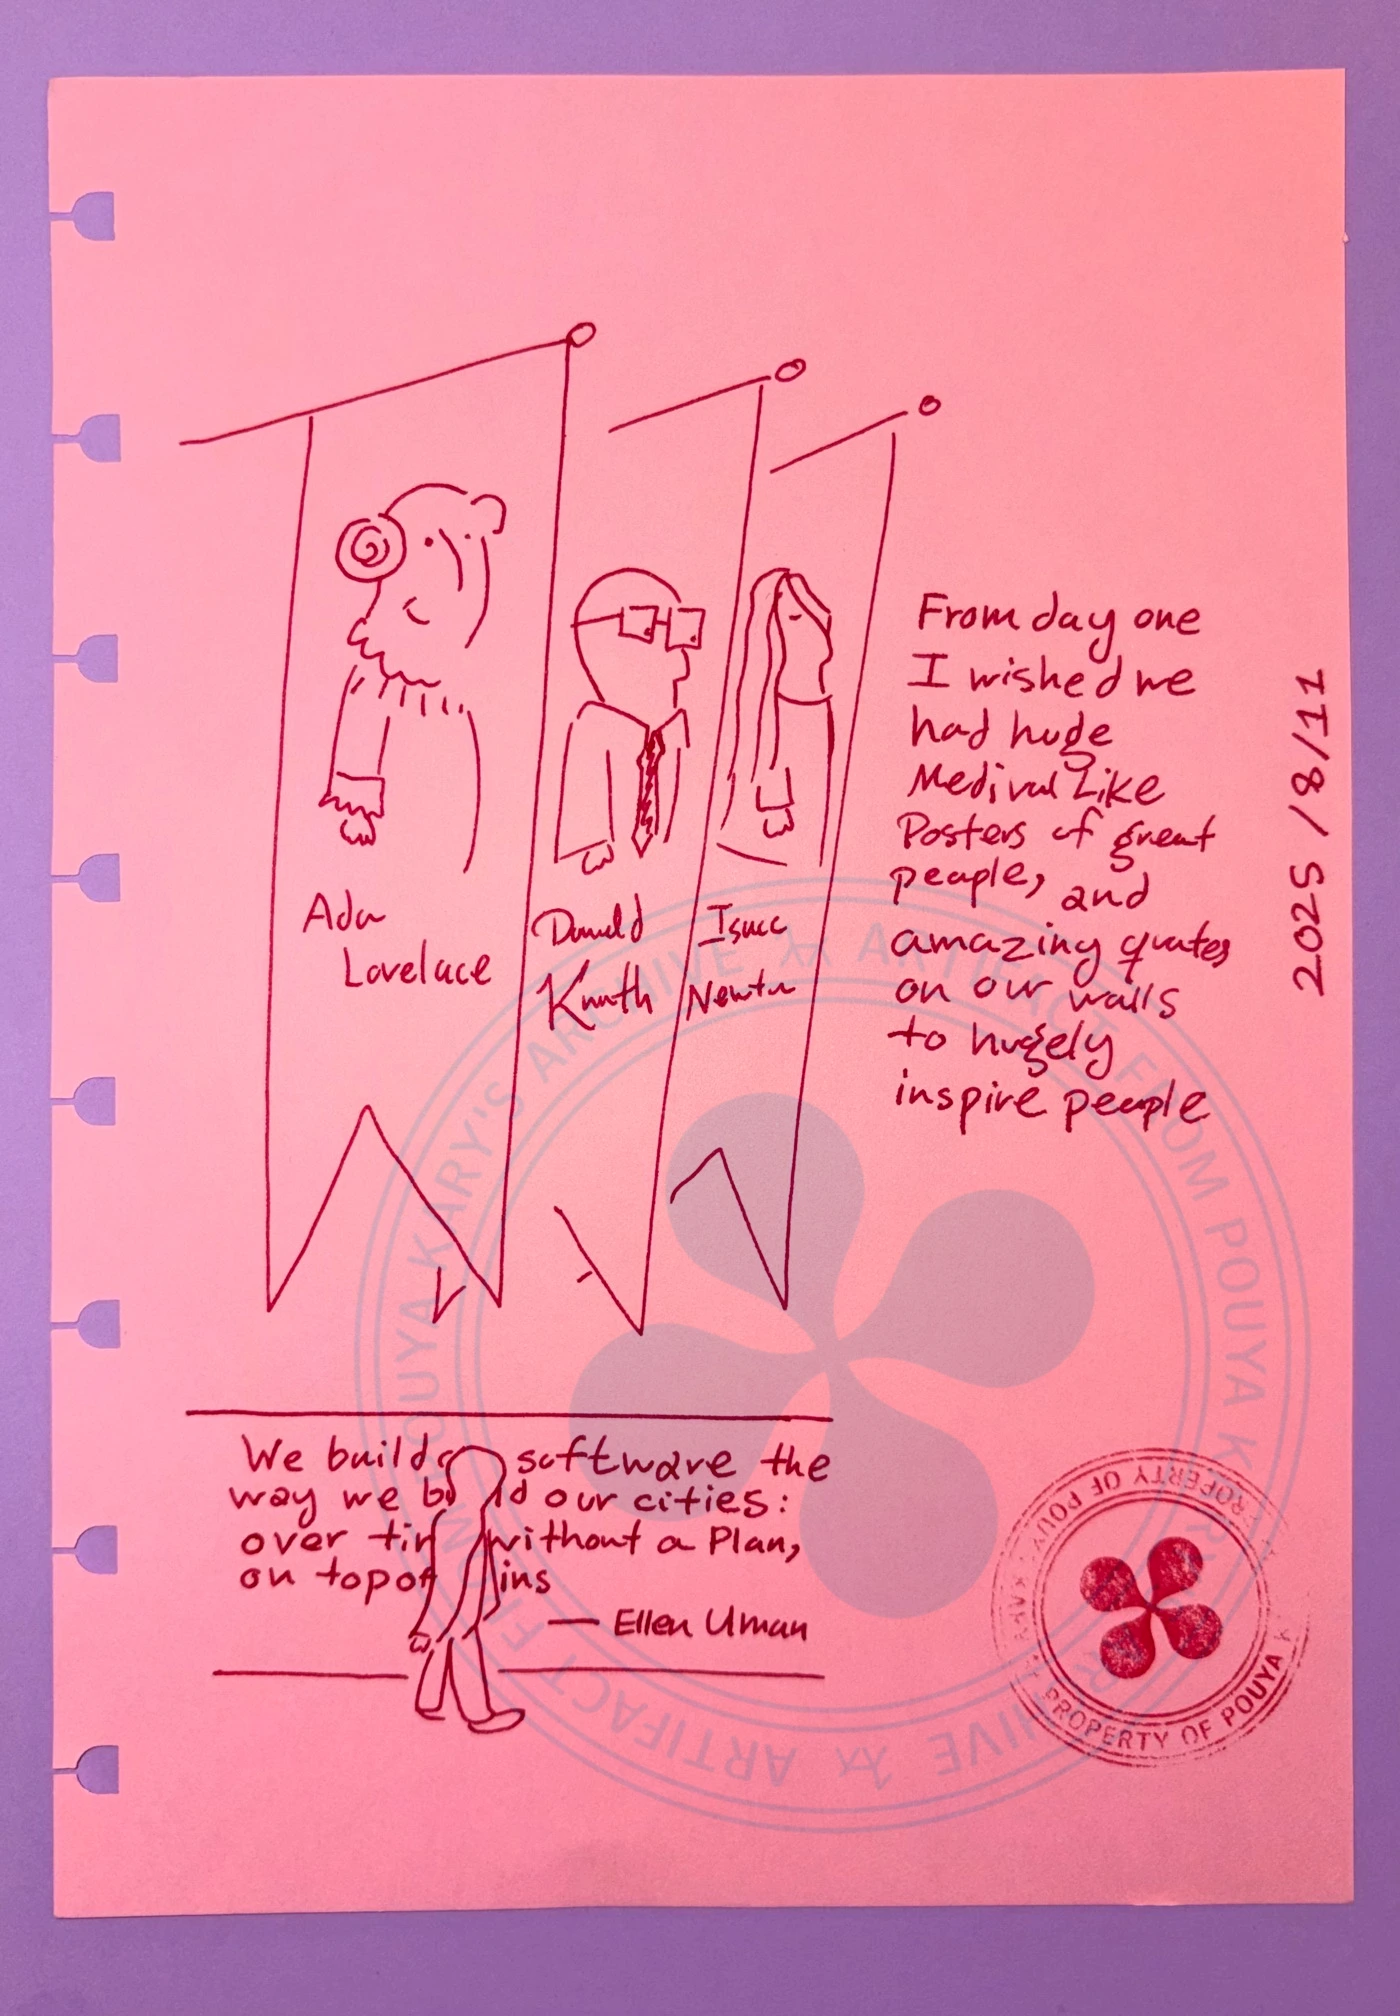 Ada
Lovelace
Donald
Knuth
Isacc
Newton
From day one
I wished we
had huge
Medival Like
Posters of great
people, and
amazing quotes
on our walls
to hugely
inspire people
2025/8/11
We build software the
way we b ld our cities:
over tim without a Plan,
on top of ins
— Ellen Uman
PROPERTY OF POUYA
PROPERTY OF POUYA KARY
ARTIFACT FROM POUYA KARY'S ARCHIVE
ARTIFACT FROM POUYA KARY'S ARCHIVE